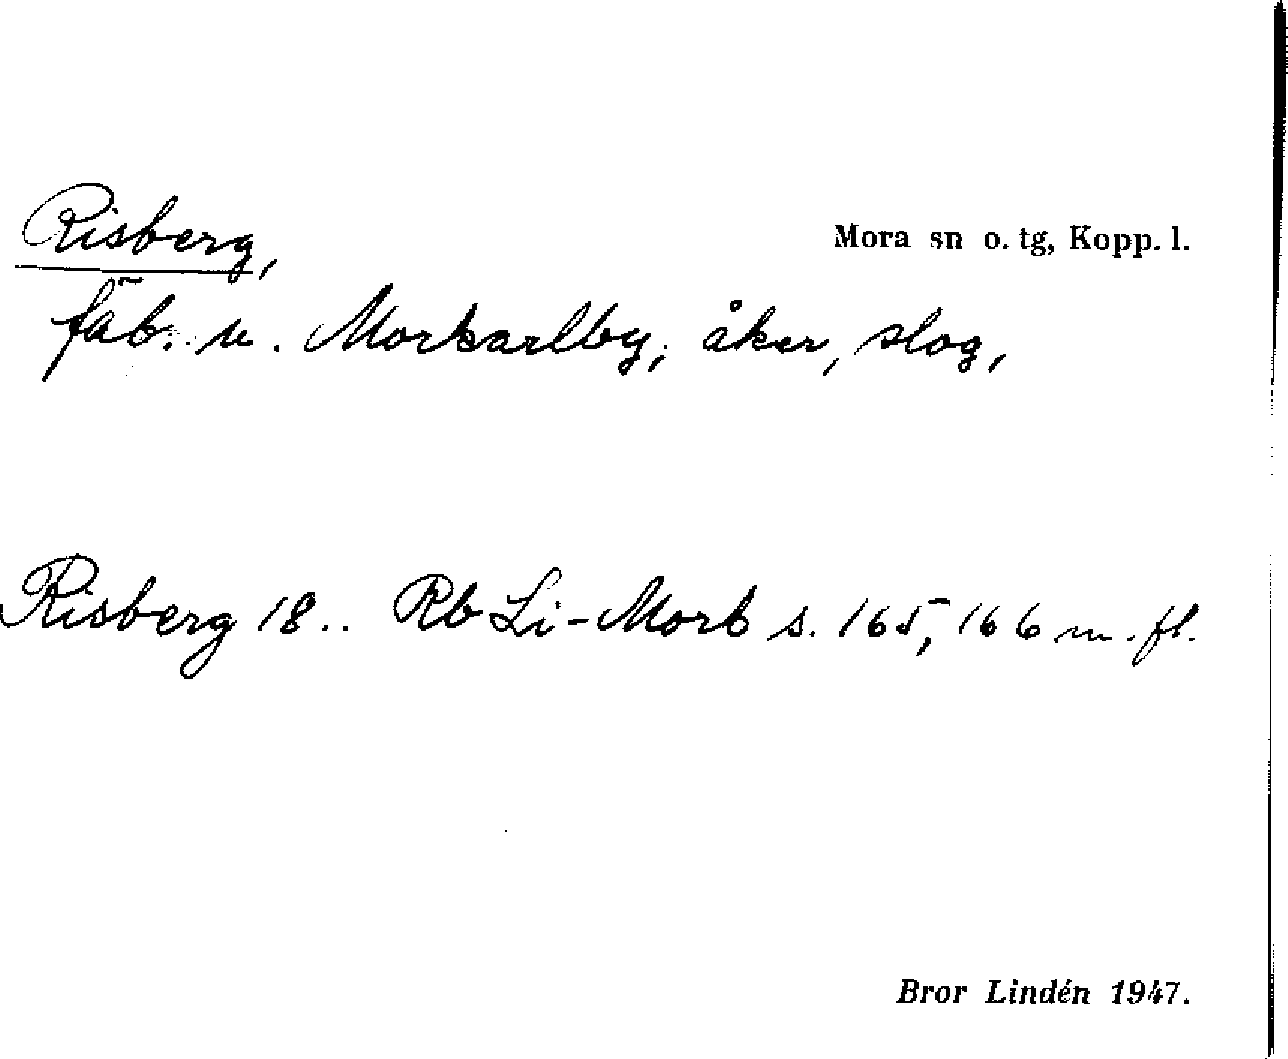 Risberg,
Mora sn o. tg, Kopp. l.
fäb. u. Morkarlby, åker, slog,
Risberg 18.. Rb Li-Morb s. 165, 166 m. fl.
Bror Lindén 1947.